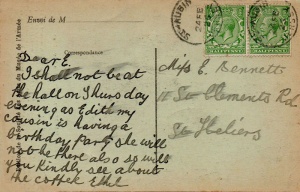 Envoi de M
Correspondance
Musée de l'Armée
ST. AUBIN
HALFPENNY
HALFPENNY
Dear E.
I shall not be at
the Hall on Thursday
evening as Edith my
cousin is having a
birthday party she will
not be there also so will
you kindly see about
the coffee Ethel
Miss E. Bennetts
11 St Clements Rd
St Heliers